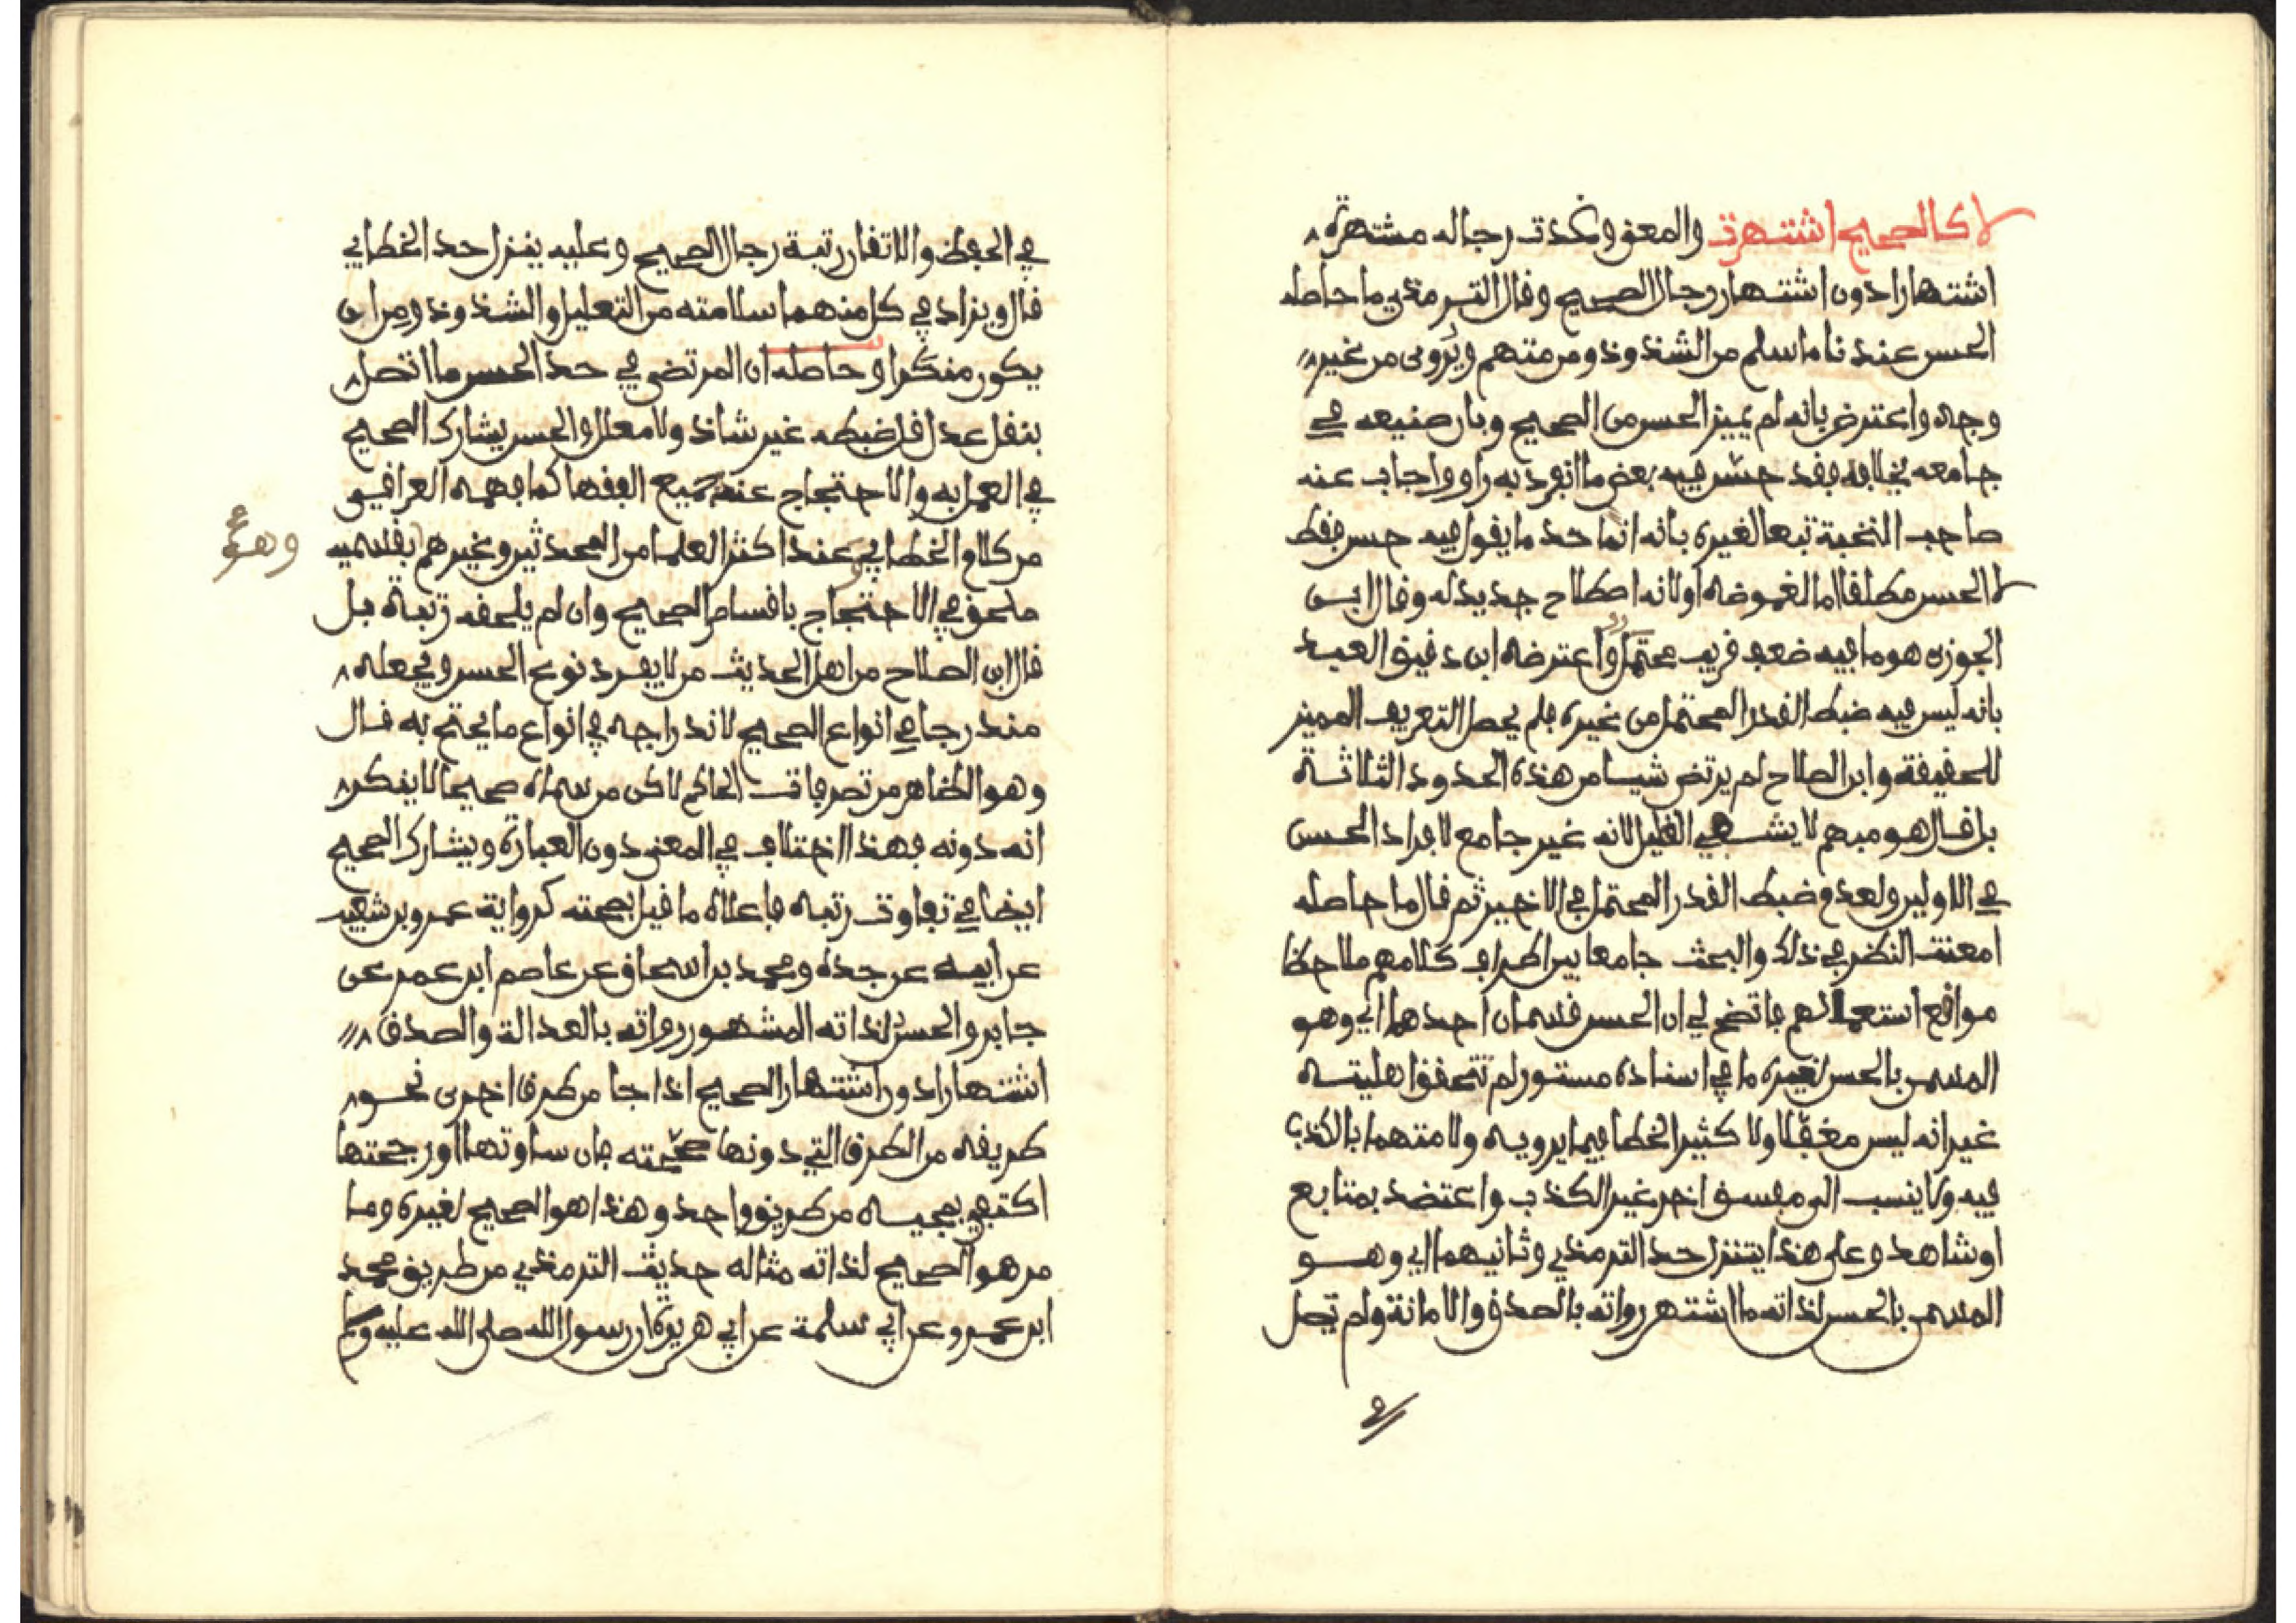 لا كالصحيح اشتهرت والمعنى وغدت رجاله مشتهرة
اشتهارا دون اشتهار رجال الصحيح وقال الترمذي ما حاصله
الحسن عندنا ما سلم من الشذوذ ومن متهم ويروى من غير
وجه واعترض بانه لم يميز الحسن من الصحيح وبان صنيعه في
جامعه يخالفه فقد حسّن فيه بعض ما انفرد به راو واجاب عنه
صاحب النخبة تبعا لغيره بانه انما حد ما يقول فيه حسن فقط
لا الحسن مطلقا اما لغموضه او لانه اصطلاح جديد له وقال ابن
الجوزي هو ما فيه ضعف قريب محتمل واعترضه ابن دقيق العيد
بانه ليس فيه ضبط القدر المحتمل من غيره فلم يحصل التعريف المميز
للحقيقة وابن الصلاح لم يرتض شيا من هذه الحدود الثلاثة
بل قال هو مبهم لا يشفي الغليل لانه غير جامع لافراد الحسن
في الاولين ولعدم ضبط القدر المحتمل في الاخير ثم قال ما حاصله
امعنت النظر في ذلك والبحث جامعا بين اطراف كلامهم ملاحظا
مواقع استعمالهم فاتضح لي ان الحسن قسمان احدهما اي وهو
المسمى بالحسن لغيره ما في اسناده مستور لم تتحقق اهليته
غير انه ليس مغفلا ولا كثير الخطا فيما يرويه ولا متهما بالكذب
فيه ولا ينسب الى مفسق اخر غير الكذب واعتضد بمتابع
او شاهد وعلى هذا يتنزل حد الترمذي وثانيهما اي وهو
المسمى بالحسن لذاته ما اشتهر رواته بالصدق والامانة ولم تصل
في الحفظ والاتقان رتبة رجال الصحيح وعليه يتنزل حد الخطابي
قال ويزاد في كل منهما سلامته من التعليل والشذوذ ومن ان
يكون منكرا وحاصله ان المرتضى في حد الحسن ما اتصل
بنقل عدل قل ضبطه غير شاذ ولا معلل والحسن يشارك الصحيح
في العمل به والاحتجاج عند جميع الفقها كما فهمه العراقي
من كلام الخطابي عند اكثر العلما من المحدثين وغيرهم بقسميه
وهو
ملحق في الاحتجاج باقسام الصحيح وان لم يلحقه رتبة بل
قال ابن الصلاح من اهل الحديث من لا يفرد نوع الحسن ويجعله
مندرجا في انواع الصحيح لاندراجه في انواع ما يحتج به قال
وهو الظاهر من تصرفات الحاكم لاكن من سماه صحيحا لا ينكر
انه دونه فهذا اختلاف في المعنى دون العبارة ويشارك الصحيح
ايضا في تفاوت رتبه فاعلاه ما قيل بصحته كرواية عمرو بن شعيب
عن ابيه عن جده ومحمد بن اسحاق عن عاصم ابن عمر عن
جابر والحسن لذاته المشهور رواته بالعدالة والصدق
اشتهارا دون اشتهار الصحيح اذا جا من طرق اخرى نحو
طريقه من الطرق التي دونها صححته فان ساوتها او رجحتها
اكتفي بمجيه من طريق واحد وهذا هو الصحيح لغيره وما
مر هو الصحيح لذاته مثاله حديث الترمذي من طريق محمد
ابن عمرو عن ابي سلمة عن ابي هريرة ان رسول الله صلى الله عليه وسلم